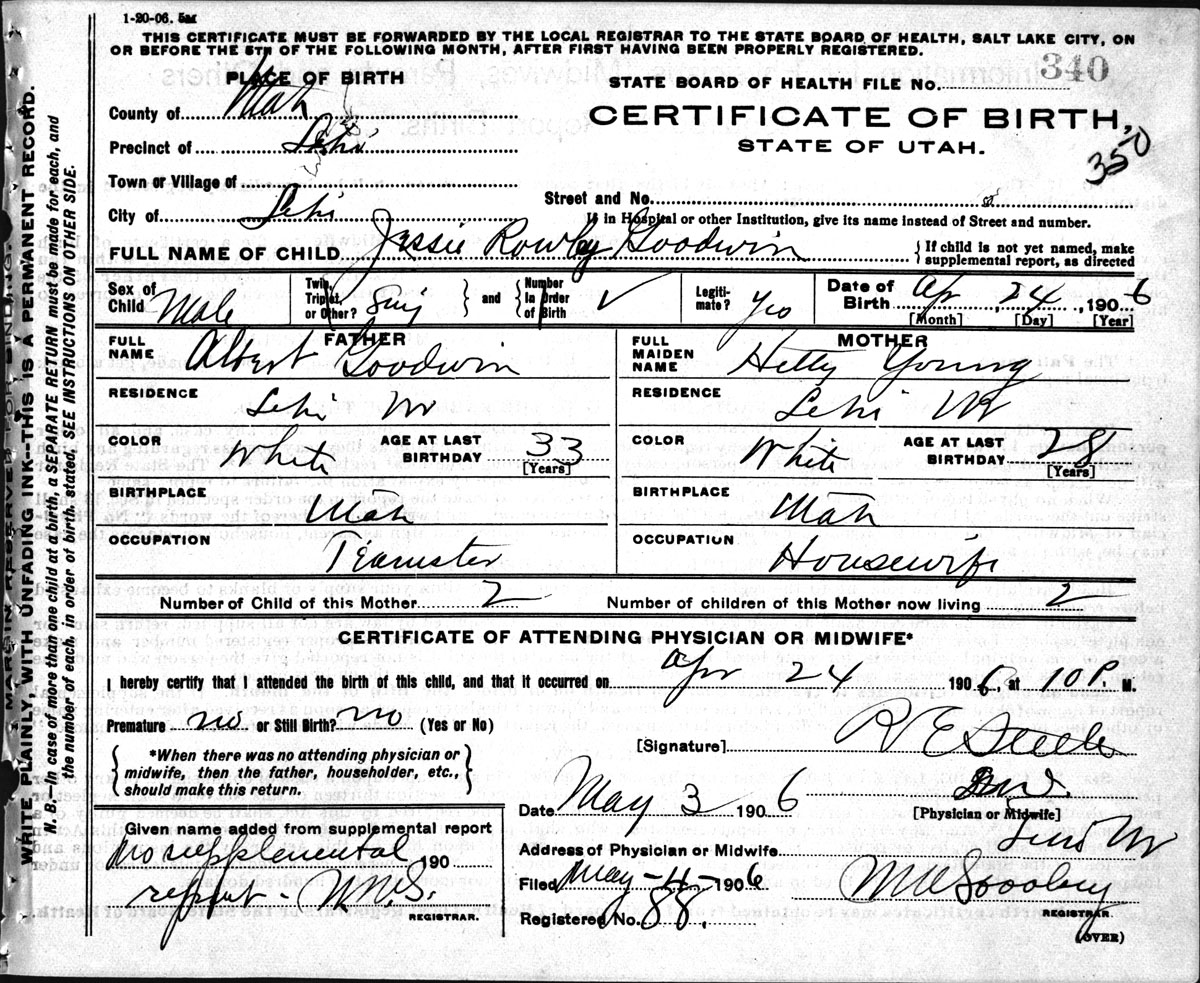 1-20-06. 5M
THIS CERTIFICATE MUST BE FORWARDED BY THE LOCAL REGISTRAR TO THE STATE BOARD OF HEALTH, SALT LAKE CITY, ON
OR BEFORE THE 5TH OF THE FOLLOWING MONTH, AFTER FIRST HAVING BEEN PROPERLY REGISTERED.
PLACE OF BIRTH
STATE BOARD OF HEALTH FILE NO. 340
County of Utah
CERTIFICATE OF BIRTH,
STATE OF UTAH.
350
Precinct of Lehi
Town or Village of
Street and No.
City of Lehi
If in Hospital or other Institution, give its name instead of Street and number.
FULL NAME OF CHILD Jessie Rowley Goodwin {If child is not yet named, make
supplemental report, as directed
Sex of Child Male
Twin, Triplet, or Other? Sing } and { Number In Order of Birth
Legitimate? Yes
Date of Birth Apr 24, 1906
[Month] [Day] [Year]
FATHER
FULL NAME Albert Goodwin
RESIDENCE Lehi Ut
COLOR White
AGE AT LAST BIRTHDAY 33
[Years]
BIRTHPLACE Utah
OCCUPATION Teamster
MOTHER
FULL MAIDEN NAME Hetty Young
RESIDENCE Lehi Ut
COLOR White
AGE AT LAST BIRTHDAY 28
[Years]
BIRTHPLACE Utah
OCCUPATION Housewife
Number of Child of this Mother 2
Number of children of this Mother now living 2
CERTIFICATE OF ATTENDING PHYSICIAN OR MIDWIFE*
I hereby certify that I attended the birth of this child, and that it occurred on Apr 24 1906, at 10 P. M.
Premature no or Still Birth? no (Yes or No)
{*When there was no attending physician or
midwife, then the father, householder, etc.,
should make this return.}
[Signature] R E Steele
[Physician or Midwife]
Date May 3 1906
Address of Physician or Midwife
Filed May-4-1906
REGISTRAR.
Registered No. 88.
(OVER)
Given name added from supplemental report
No supplemental 190
report - 
REGISTRAR.
MARGIN RESERVED FOR BINDING.
WRITE PLAINLY, WITH UNFADING INK—THIS IS A PERMANENT RECORD.
N. B.—In case of more than one child at a birth, a SEPARATE RETURN must be made for each, and
the number of each, in order of birth, stated. SEE INSTRUCTIONS ON OTHER SIDE.